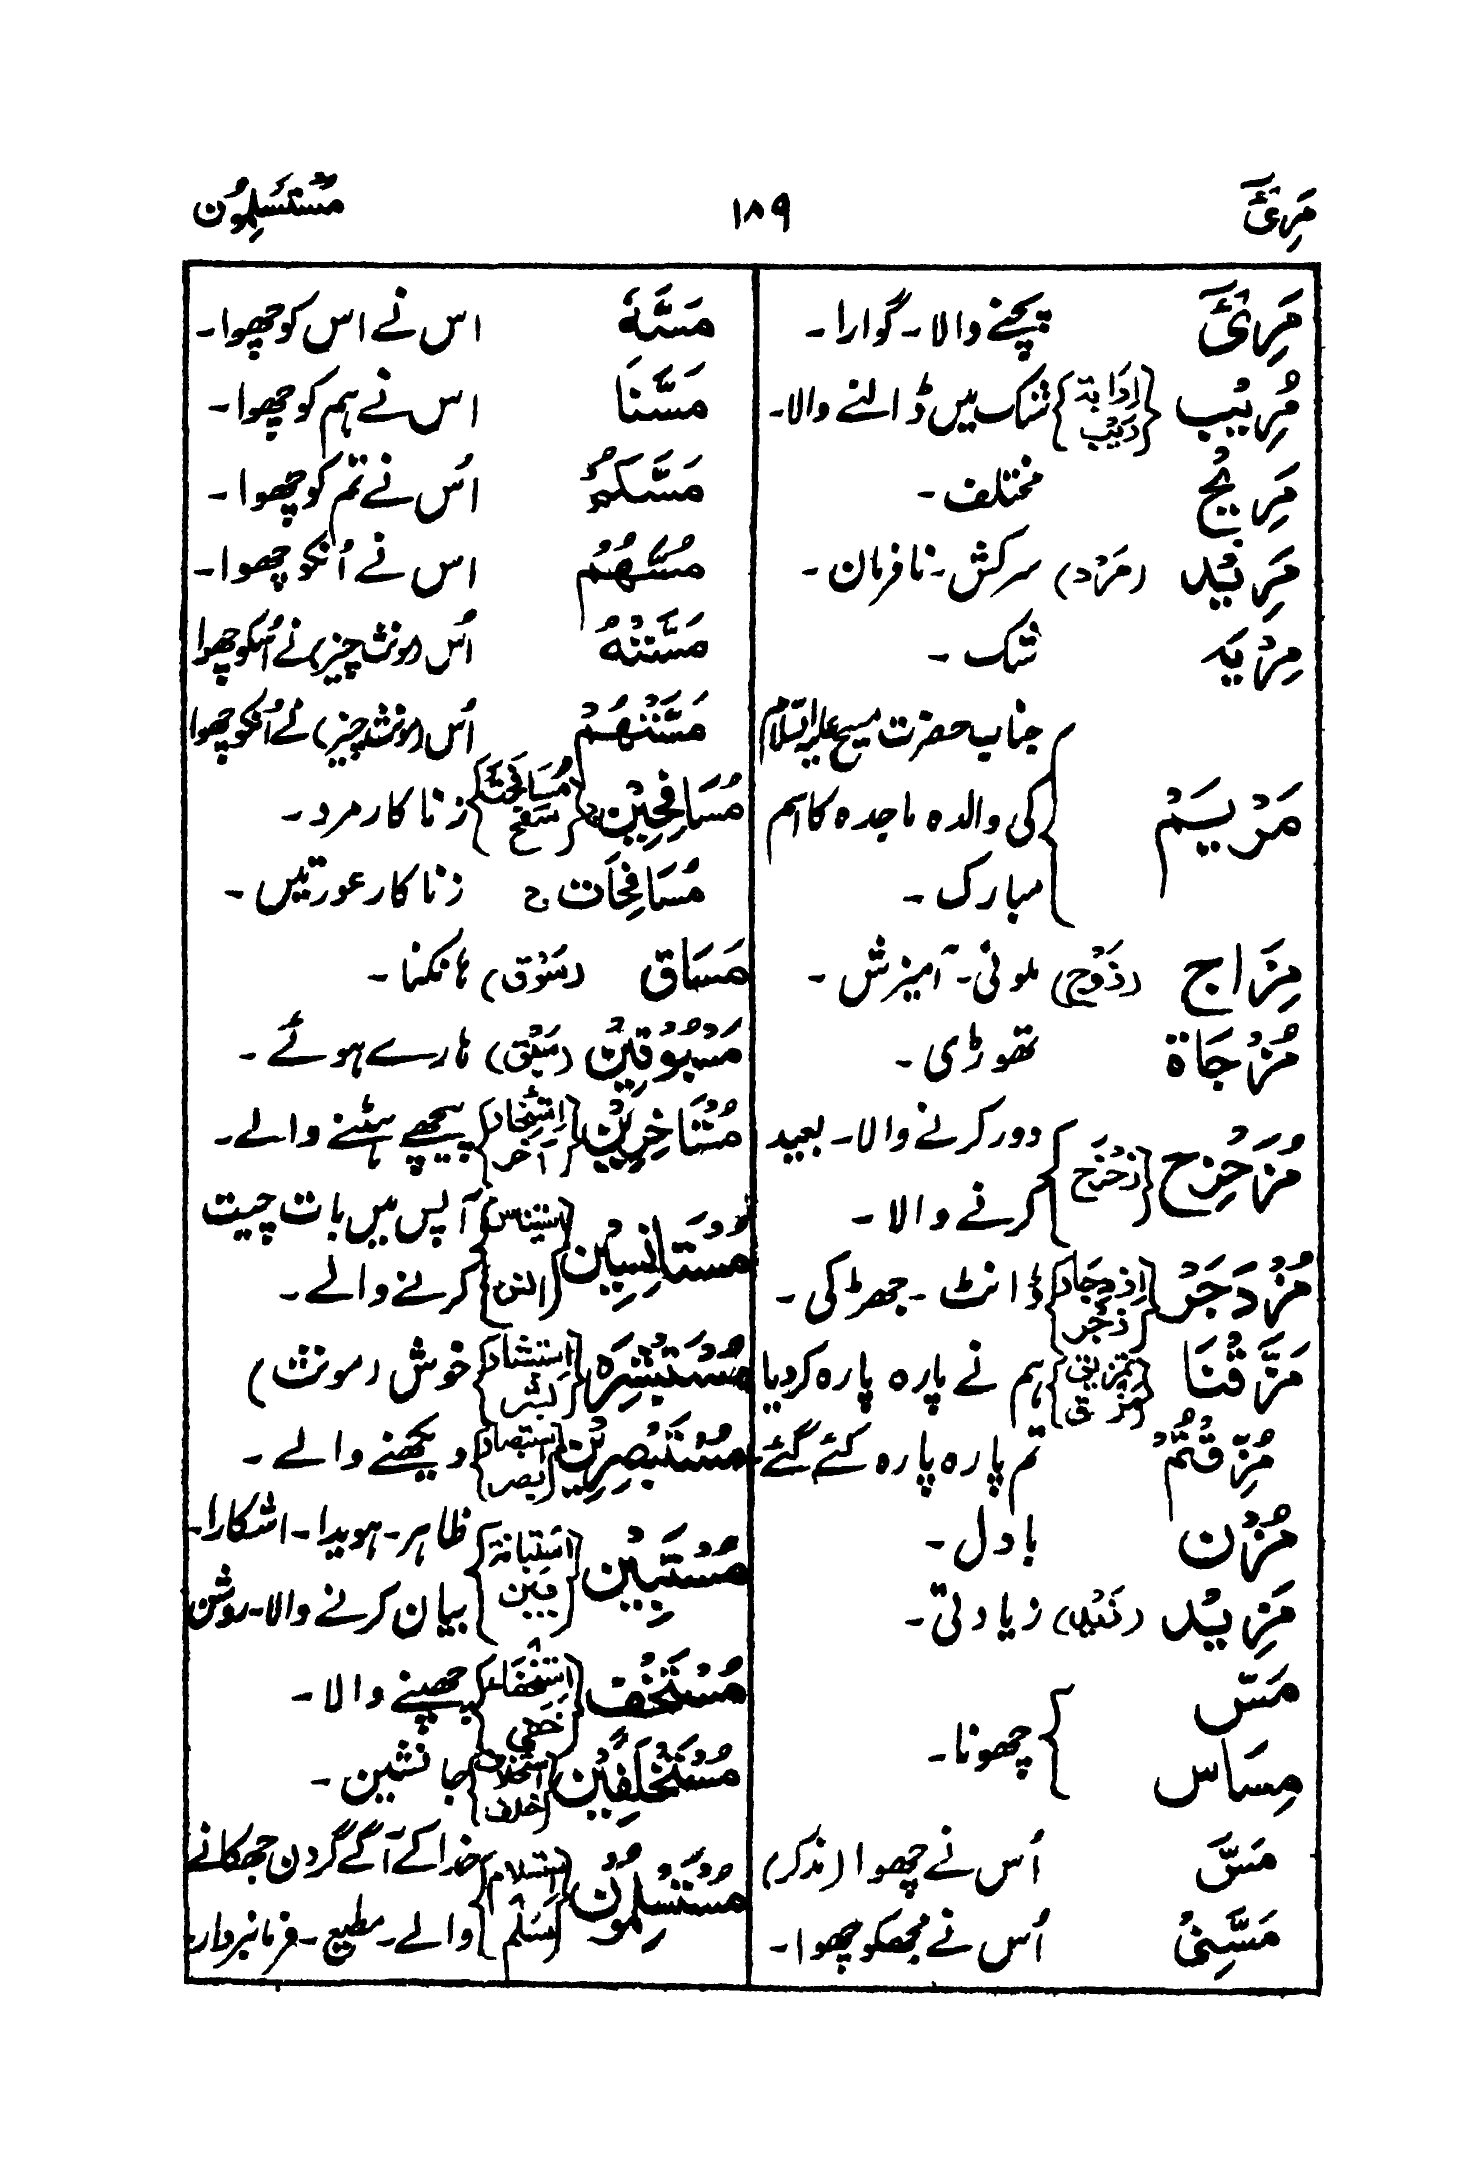 مَرِيْٓئَ ۱۸۹ مُسْتَسْلِمُوْن
مَرِيْٓئَ پچنے والا۔ گوارا۔
مُرِیْب {اِرَابَۃ رَیْب} شک میں ڈالنے والا۔
مَرِیْج مختلف۔
مَرِیْد (مَرَد) سرکش۔ نافرمان۔
مِرْیَہ شک۔
مَرْیَمْ {جناب حضرت مسیح علیہ السلام
کی والدہ ماجدہ کا اسم
مبارک۔
مِزَاج (زَوْج) ملونی۔ آمیزش۔
مُزْجَاۃ تھوڑی۔
مُزَحْزِح {زَحْزَح} دور کرنے والا۔ بعید
کرنے والا۔
مُزْدَجَرْ {اِزْدِجَار زَجَر} ڈانٹ۔ جھڑکی۔
مَزَّقْنَا {تمزیق مزق} ہم نے پارہ پارہ کردیا
مُزِّقْتُمْ تم پارہ پارہ کئے گئے۔
مُزْن بادل۔
مَزِیْد (زَیْد) زیادتی۔
مَسّ
مِسَاس {چھونا۔
مَسَّ اُس نے چھوا (مذکر)
مَسَّنِیْ اُس نے مجھکو چھوا۔
مَسَّہٗ اس نے اس کو چھوا۔
مَسَّنَا اس نے ہم کو چھوا۔
مَسَّكُمْ اُس نے تم کو چھوا۔
مَسَّهُمْ اس نے اُنکو چھوا۔
مَسَّتْهُ اُس (مونث چیز) نے اُسکو چھوا
مَسَّتْهُمْ اُس (مونث چیز) نے اُنکو چھوا
مُسَافِحِیْن ج {مُسَافَحَۃ سَفَح} زناکار مرد۔
مُسَافِحَات ج زناکار عورتیں۔
مَسَاق (سَوْق) ہانکنا۔
مَسْبُوْقِیْن (سَبْق) ہارے ہوئے۔
مُسْتَاخِرِیْن {اِسْتِیْخَار آخر} پیچھے ہٹنے والے۔
مُسْتَانِسِیْن {استیناس انس} آپس میں بات چیت
کرنے والے۔
مُسْتَبْشِرَہ {اِسْتِبْشَار بشر} خوش (مونث)
مُسْتَبْصِرِیْن {استبصار بصر} دیکھنے والے۔
مُسْتَبِیْن {اِسْتِبَانَۃ بین} ظاہر۔ ہویدا۔ اشکارا۔
بیان کرنے والا۔ روشن
مُسْتَخْفٍ {اِسْتِخْفَاء خَفِی} چھپنے والا۔
مُسْتَخْلَفِیْن {استخلاف خلف} جانشین۔
مُسْتَسْلِمُوْن {استسلام سَلَم} خدا کے آگے گردن جھکانے
والے۔ مطیع۔ فرمانبردار۔